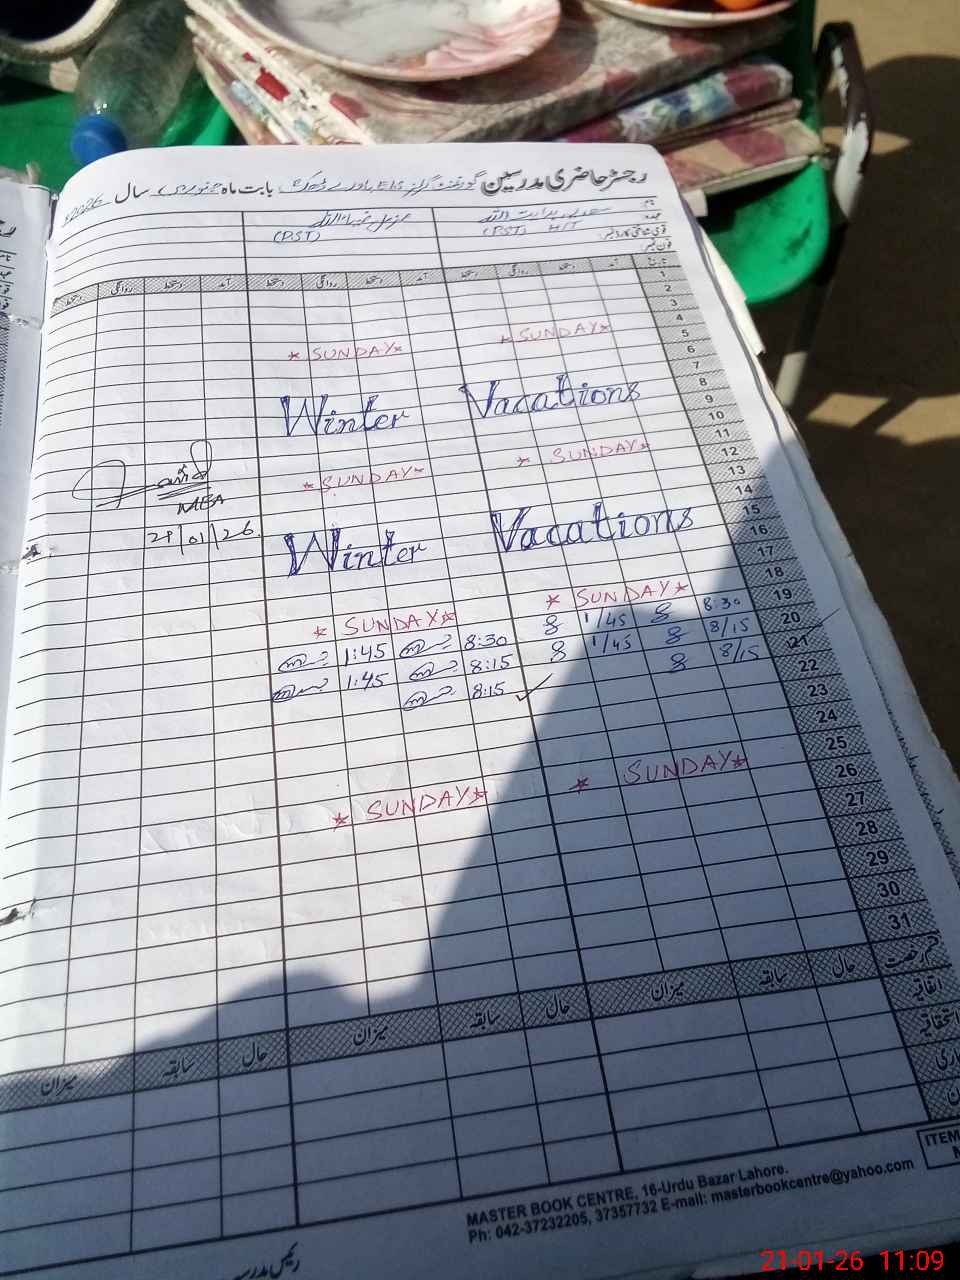 رجسٹر حاضری مدرسین گورنمنٹ گرلز بابت ماہ جنوری سال 2026ء
نام
عہدہ
قومی شناختی کارڈ نمبر
فون نمبر
(PST) H/T
(PST)
تاریخ آمد دستخط روانگی دستخط آمد دستخط روانگی دستخط آمد دستخط روانگی دستخط
1
2
3
4
★ SUNDAY ★ ★ SUNDAY ★
5
6
7
8
Winter Vacations
9
10
11
★ SUNDAY ★ ★ SUNDAY ★
12
13
14
15
Winter Vacations
16
17
18
★ SUNDAY ★ ★ SUNDAY ★
19
1:45 8:30 1/45 8:30
20
1:45 8:15 1/45 8/15
21
8:15 8/15
22
23
24
25
★ SUNDAY ★ ★ SUNDAY ★
26
27
28
29
30
31
MEA
21/01/26
قسم رخصت حال سابقہ میزان حال سابقہ میزان حال سابقہ میزان
اتفاقیہ
استحقاقیہ
MASTER BOOK CENTRE, 16-Urdu Bazar Lahore.
Ph: 042-37232205, 37357732 E-mail: masterbookcentre@yahoo.com
ITEM
21-01-26 11:09